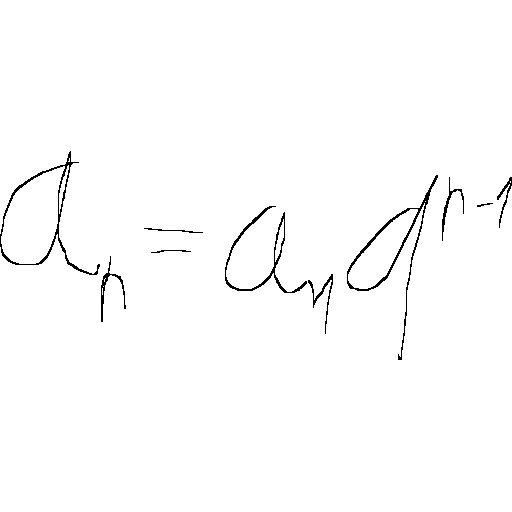 aₙ = a₁qⁿ⁻¹